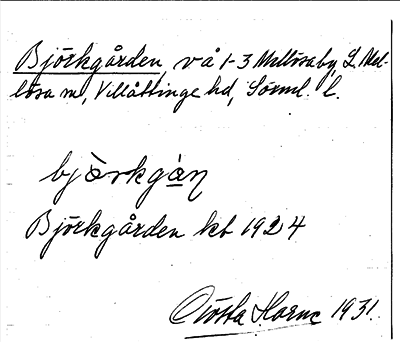 Björkgården, vå 1-3 Mellösaby, L. Mel-
lösa sn, Villåttinge hd, Sörml. l.
björkgàn
Björkgården kb 1924
Gösta Horne 1931.